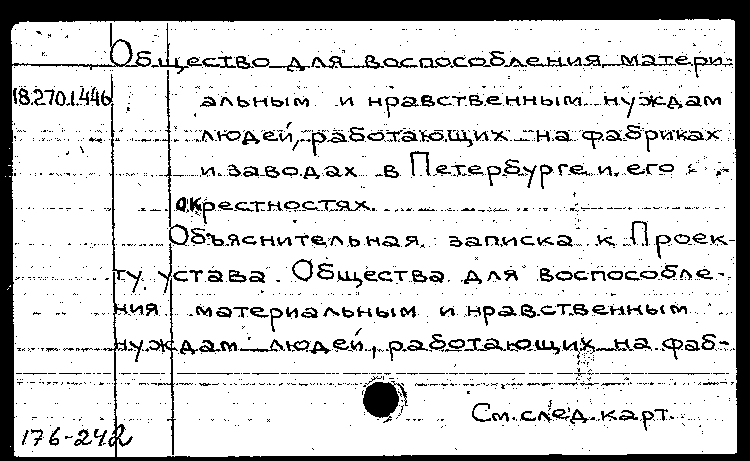 Общество для воспособления матери-
18.270.1.446 альным и нравственным нуждам
людей, работающих на фабриках
и заводах в Петербурге и его
окрестностях
Объяснительная записка к Проек-
ту устава Общества для воспособле-
ния материальным и нравственным
нуждам людей, работающих на фаб-
См. след. карт.
176-242